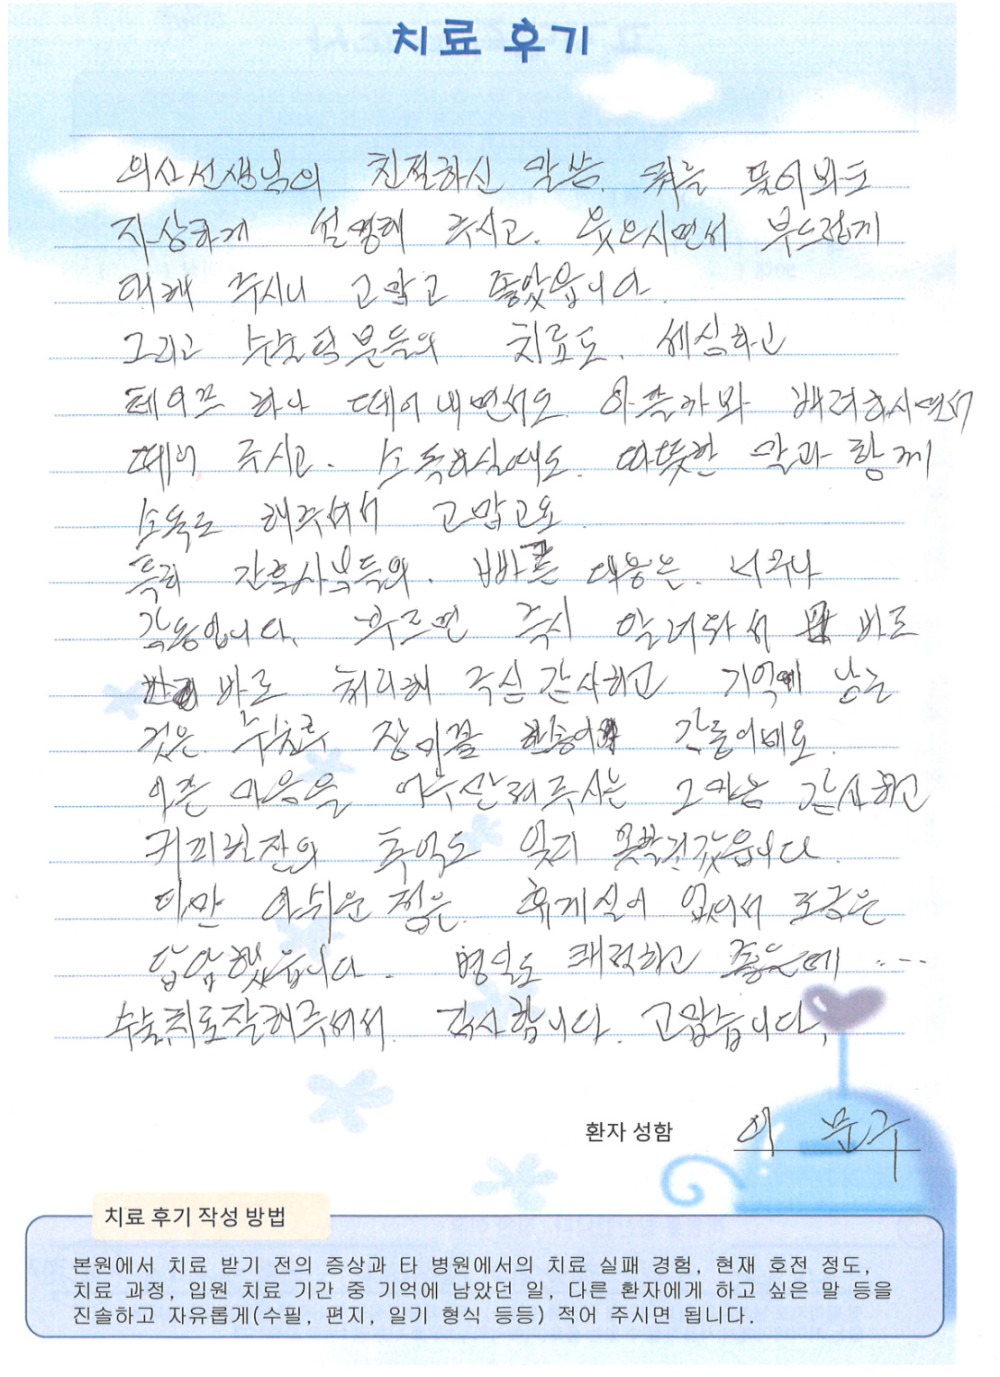 치료 후기
의사선생님의 친절하신 말씀. 뭐를 물어봐도
자상하게 설명해 주시고. 웃으시면서 부드럽게
대해 주시니 고맙고 좋았읍니다.
그리고 분들의 치료도. 세심하고
테이프 하나 떼어내면서도. 아플까봐 배려하시면서
떼어 주시고. 소독하실때도. 따뜻한 말과 함께
소독도 해주셔서 고맙고요.
특히 간호사분들의. 빠른 대응은. 너무나
감동입니다. 부르면 즉시 달려와서 바로
바로 처리해 주심 감사하고 기억에 남는
것은. 감동이네요.
아픈 마음을 주시는 그마음 감사하고
커피한잔의 추억도 잊지 못할것같읍니다.
다만 아쉬운 점은. 휴게실이 없어서 조금은
답답했읍니다. 병실도 쾌적하고 좋은데 ....
수술,치료잘해주셔서. 감사합니다. 고맙습니다,
환자 성함 이 문구
치료 후기 작성 방법
본원에서 치료 받기 전의 증상과 타 병원에서의 치료 실패 경험, 현재 호전 정도,
치료 과정, 입원 치료 기간 중 기억에 남았던 일, 다른 환자에게 하고 싶은 말 등을
진솔하고 자유롭게(수필, 편지, 일기 형식 등등) 적어 주시면 됩니다.